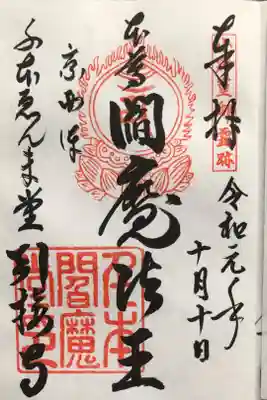 奉拝
令和元年
十月十日
本尊
閻魔法王
千本ゑんま堂
引接寺
霊跡
閻魔